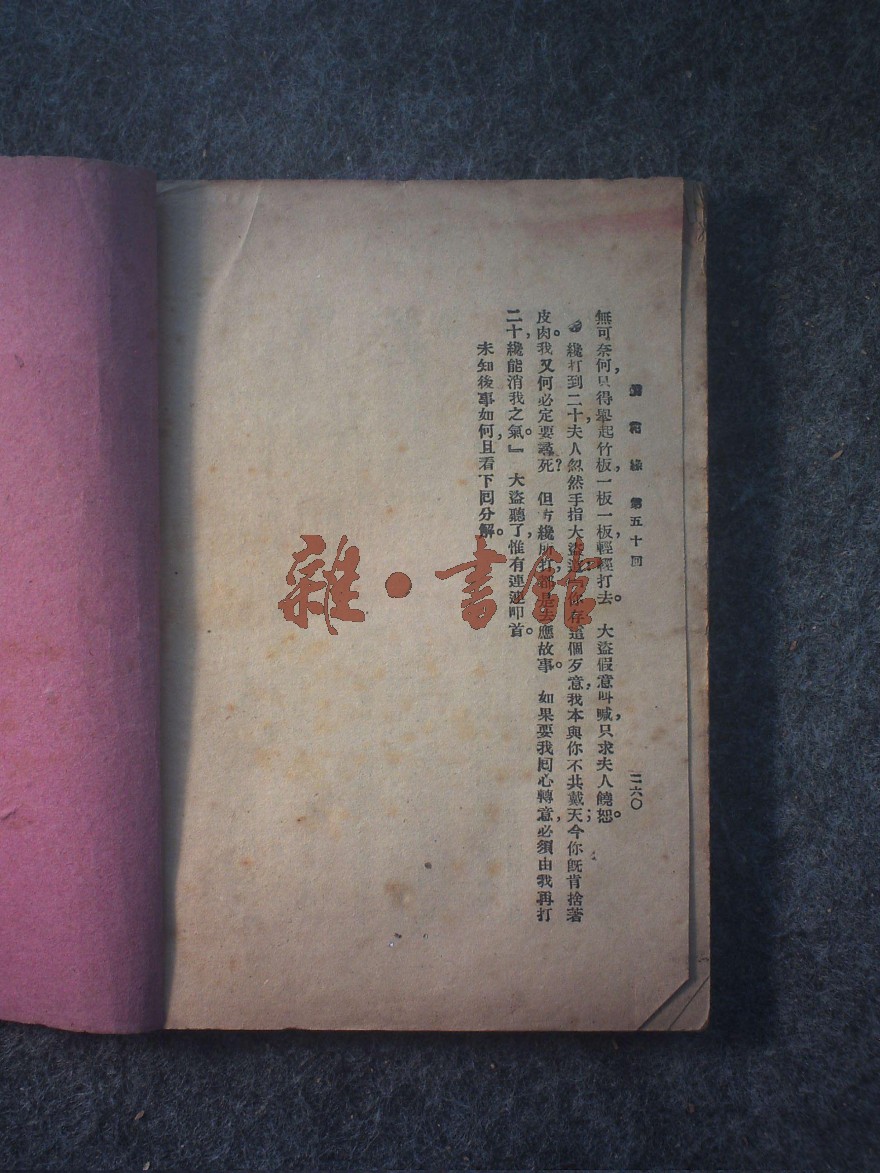 鏡花緣 第五十回 二六〇
無可奈何，只得舉起竹板，一板一板，輕輕打去。 大盜假意叫喊，只求夫人饒恕。
纔打到二十，夫人忽然手指大盜 你存這個歹意，我本與你不共戴天；今你既肯捨著
皮肉。我又何必定要尋死？ 但方纔所打，都是 應故事。 如果要我回心轉意，必須由我再打
二十，纔能消我之氣。』 大盜聽了，惟有連連叩首。
未知後事如何，且看下回分解。
雜·書館